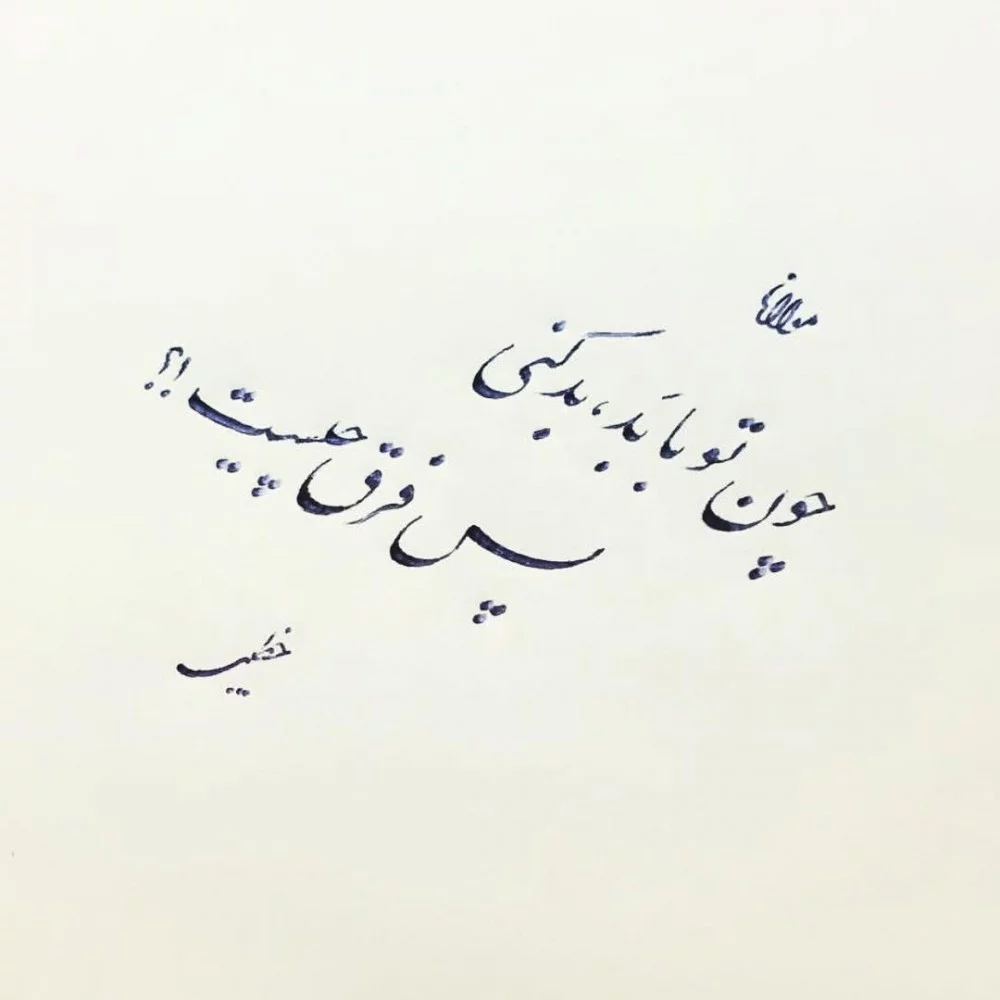 مولانا
چون تو با بَد، بد کنی
پس فرق چیست!؟
خطیب